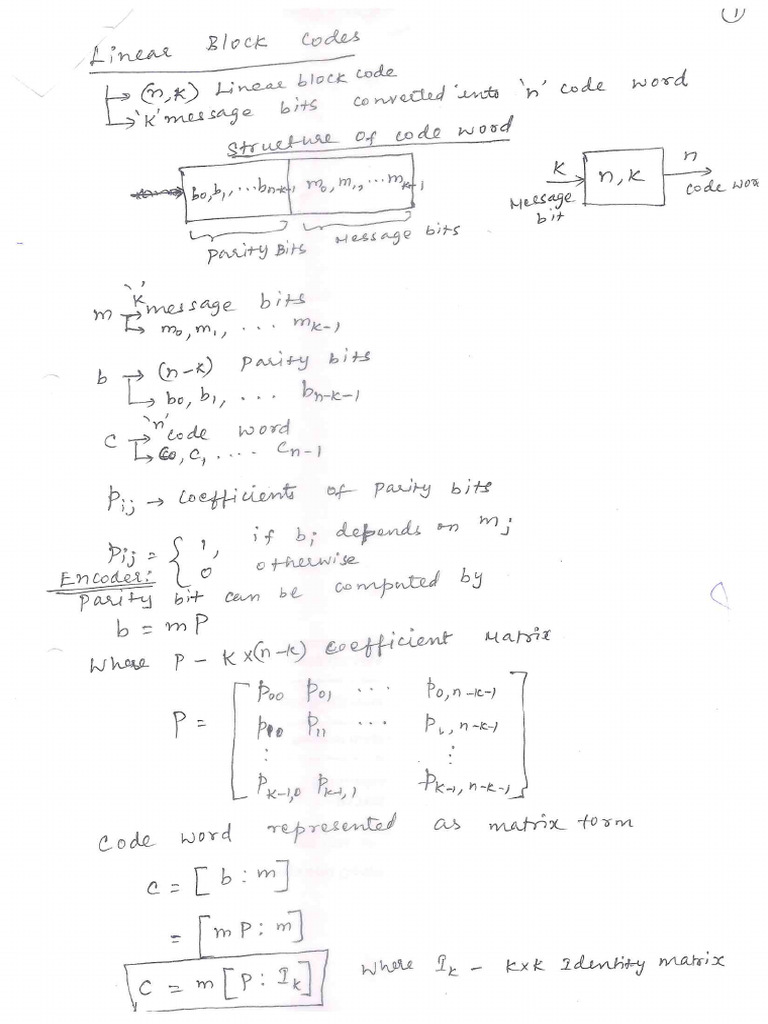 1
Linear Block Codes
→ (n,k) Linear block code
→ 'k' message bits converted into 'n' code word
Structure of code word
b0, b1, ... bn-k-1 m0, m1, ... mk-1
Parity Bits Message bits
k n,k n
Message bit code wor
m → 'k' message bits
→ m0, m1, ... mk-1
b → (n-k) Parity bits
→ b0, b1, ... bn-k-1
c → 'n' code word
→ c0, c1 .... cn-1
Pij → coefficients of Parity bits
Pij = { 1, if bi depends on mj
0 otherwise
Encoder:
Parity bit can be computed by
b = mP
Where P - k×(n-k) coefficient Matrix
P = [ P00 P01 ... P0,n-k-1
P10 P11 ... P1,n-k-1
⋮ ⋮
Pk-1,0 Pk-1,1 Pk-1,n-k-1 ]
Code word represented as matrix form
c = [b : m]
= [mP : m]
c = m[P : Ik] Where Ik - k×k Identity matrix